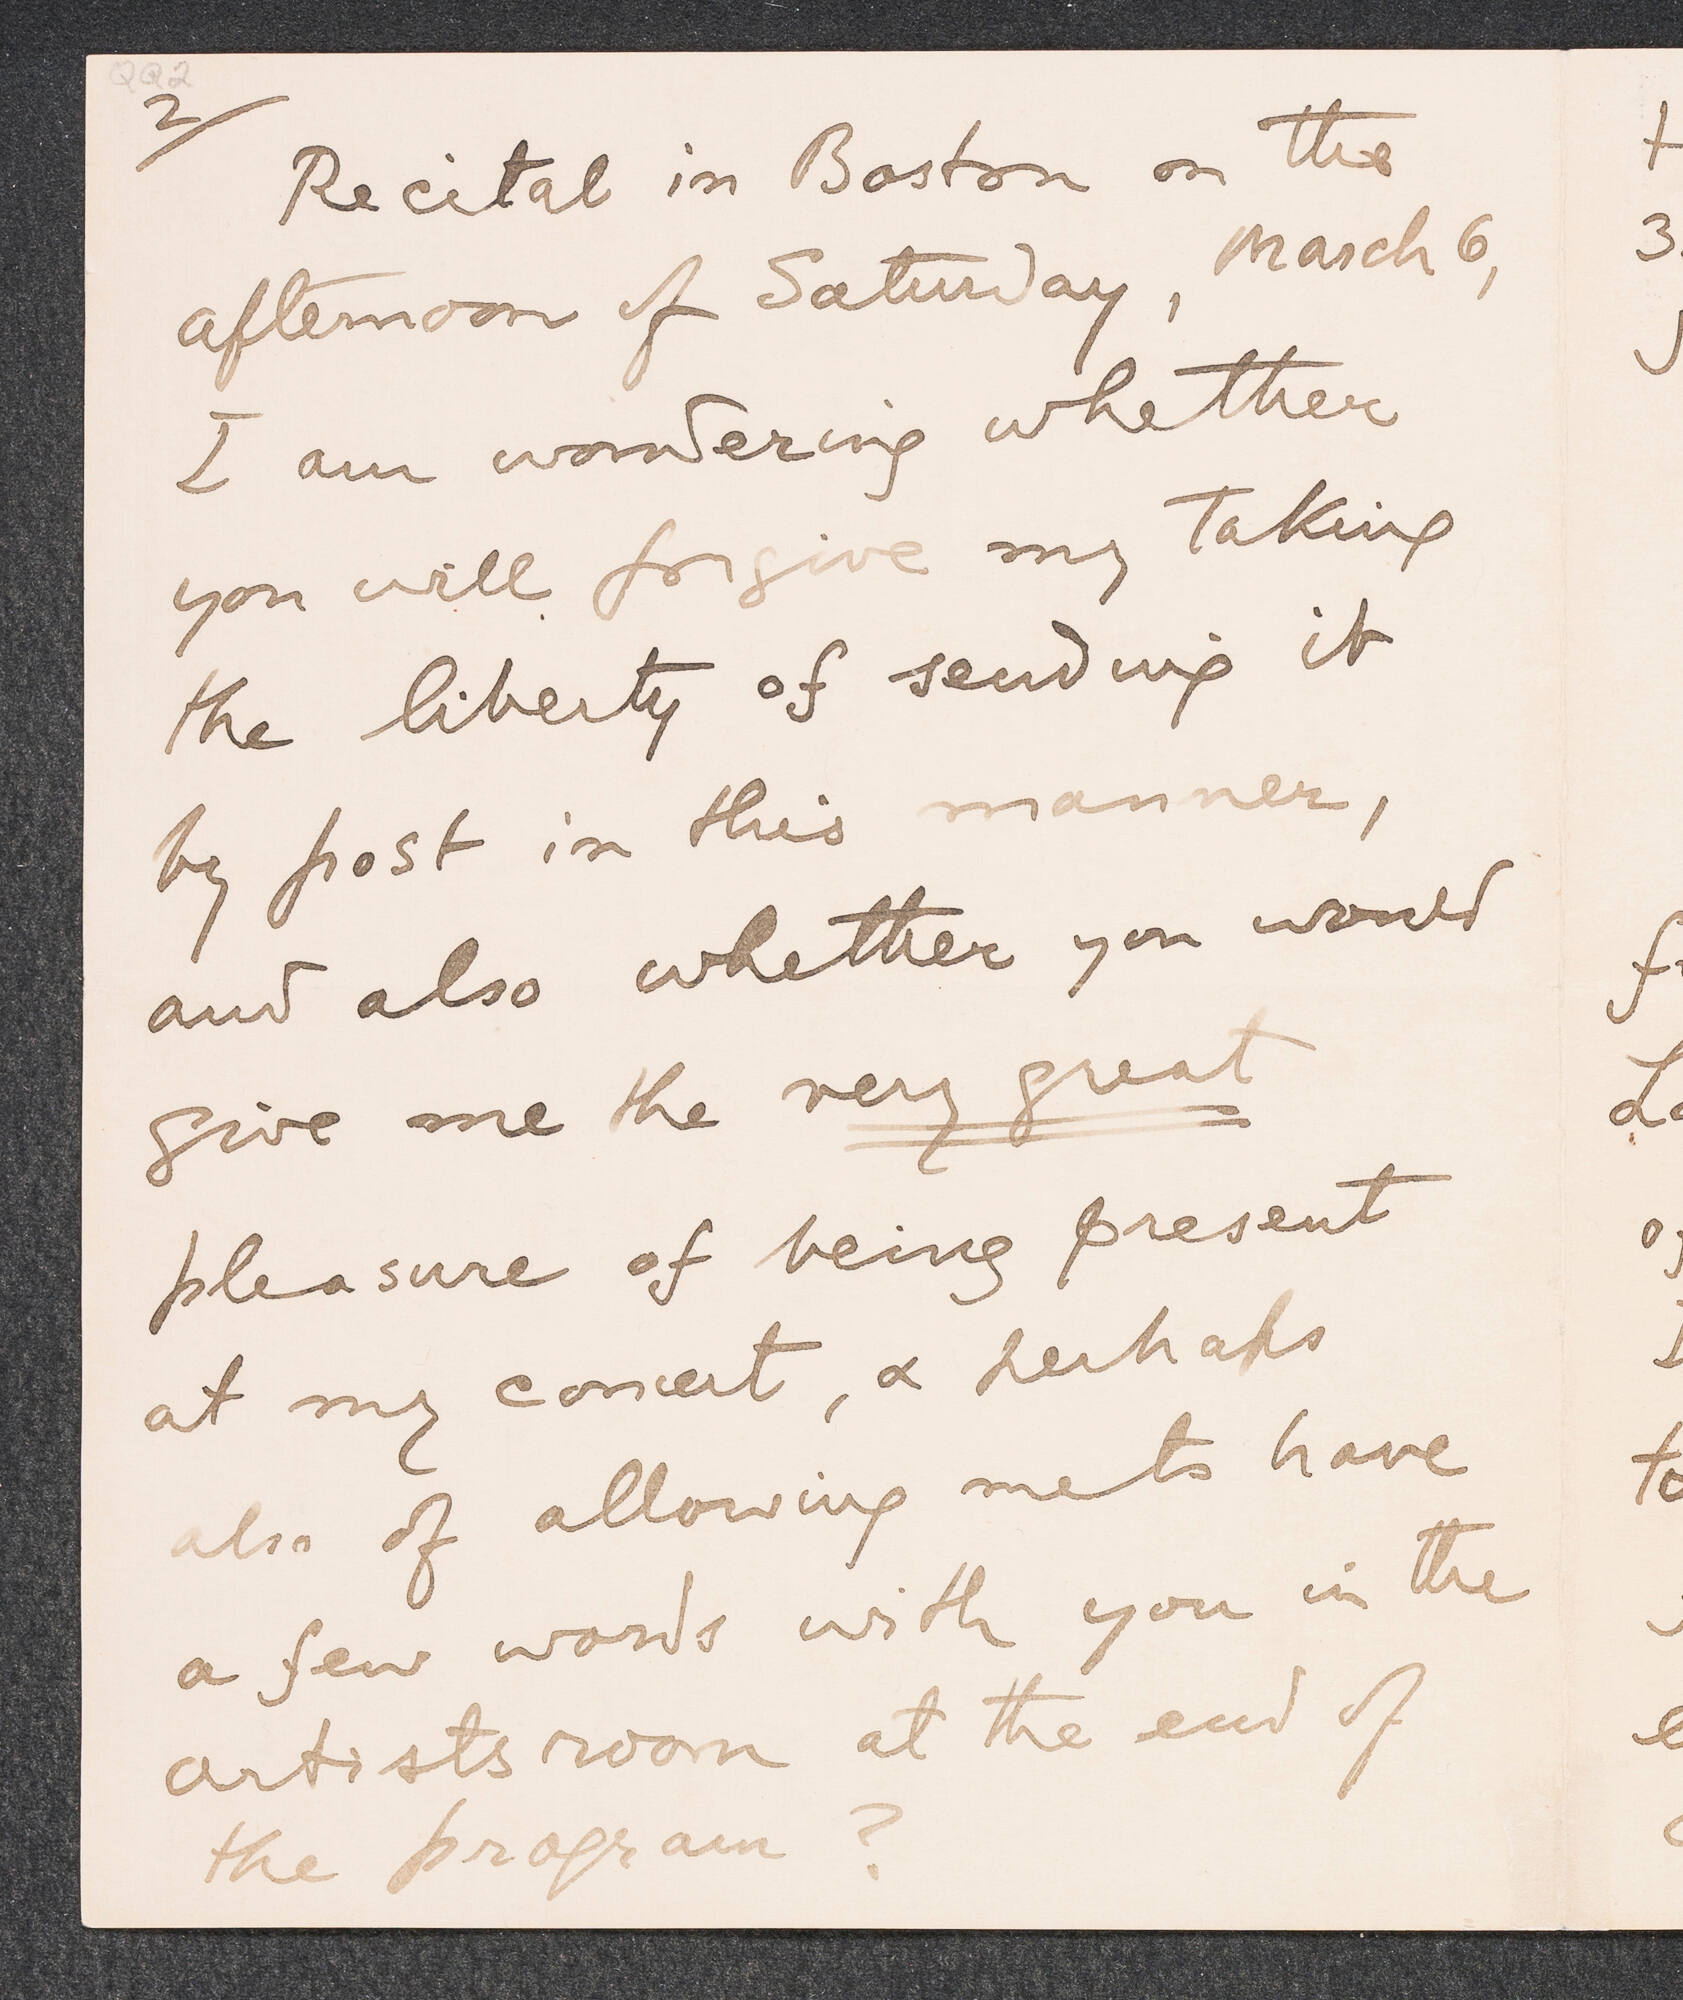 QQ2
2/
Recital in Boston on the
afternoon of Saturday, March 6,
I am wondering whether
you will forgive my taking
the liberty of sending it
by post in this manner,
and also whether you would
give me the very great
pleasure of being present
at my concert, & perhaps
also of allowing me to have
a few words with you in the
artists room at the end of
the program?